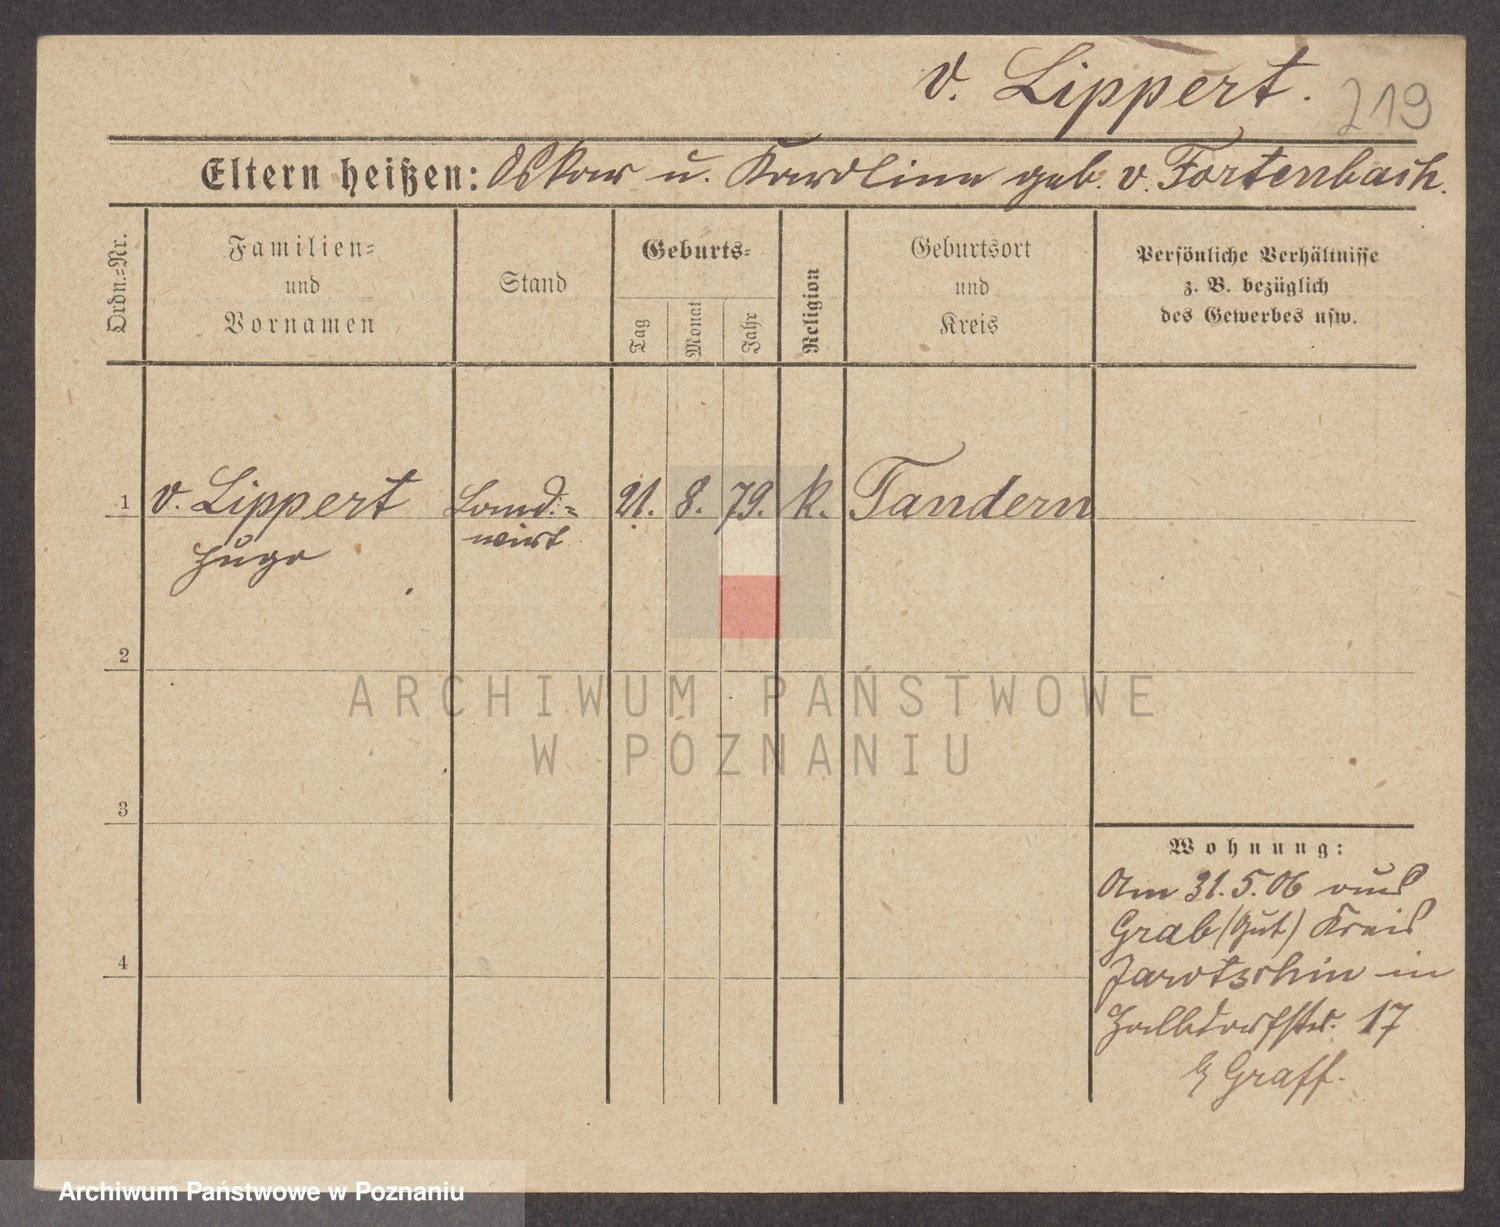 v. Lippert.
219
Eltern heißen: Oskar u. Karoline geb. v. Fortenbach.
Ordn.=Nr.
Familien=
und
Vornamen
Stand
Geburts=
Tag
Monat
Jahr
Religion
Geburtsort
und
Kreis
Persönliche Verhältnisse
z. B. bezüglich
des Gewerbes usw.
1 v. Lippert Land= 21. 8. 79. k. Tandern
Hugo wirt
2
3
4
Wohnung:
Am 31.5.06 aus
Grab (Gut) Kreis
Jarotschin in
17
Graff.
ARCHIWUM PAŃSTWOWE
W POZNANIU
Archiwum Państwowe w Poznaniu